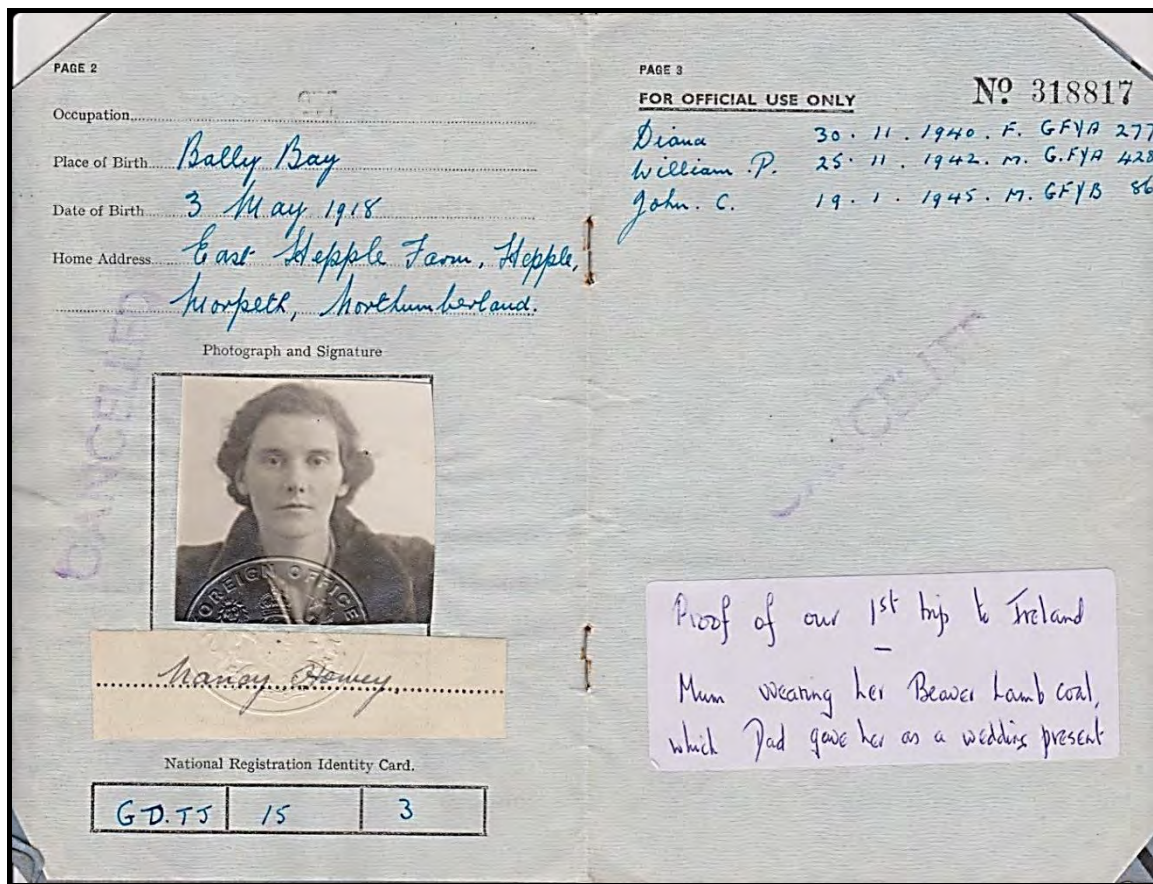 PAGE 2
Occupation
Place of Birth Bally Bay
Date of Birth 3 May 1918
Home Address East Hepple Farm, Hepple,
Morpeth, Northumberland.
Photograph and Signature
CANCELLED
FOREIGN OFFICE
Nancy Howey
National Registration Identity Card.
GD.TJ 15 3
PAGE 3
FOR OFFICIAL USE ONLY
Nº 318817
Diana 30 . 11 . 1940 . F. GFYA 277
William .P. 25 . 11 . 1942 . M. G.FYA 428
John . C. 19 . 1 . 1945 . M. GFYB 86
CANCELLED
Proof of our 1st trip to Ireland
–
Mum wearing her Beaver Lamb coat,
which Dad gave her as a wedding present